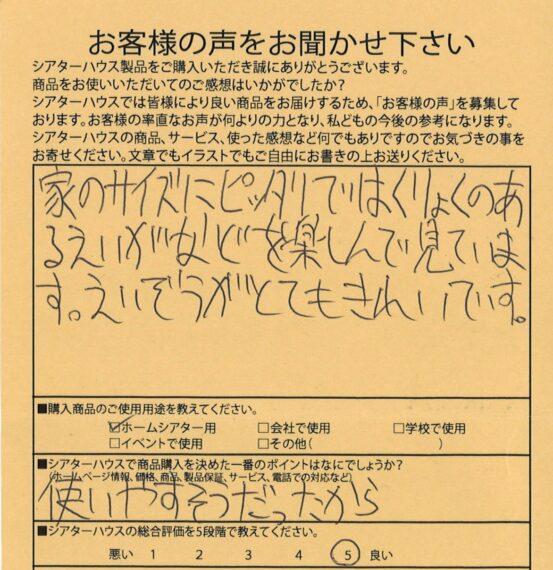 お客様の声をお聞かせ下さい
シアターハウス製品をご購入いただき誠にありがとうございます。
商品をお使いいただいてのご感想はいかがでしたか?
シアターハウスでは皆様により良い商品をお届けするため、「お客様の声」を募集して
おります。お客様の率直なお声が何よりの力となり、私どもの今後の参考になります。
シアターハウスの商品、サービス、使った感想など何でもありですのでお気づきの事を
お寄せください。文章でもイラストでもご自由にお書きの上お送りください。
家のサイズにピッタリではくりょくのあ
るえいがなどを楽しんで見ていま
す。えいぞうがとてもきれいです。
■購入商品のご使用用途を教えてください。
☑ホームシアター用 □会社で使用 □学校で使用
□イベントで使用 □その他( )
■シアターハウスで商品購入を決めた一番のポイントはなにでしょうか?
(ホームページ情報、価格、商品、製品保証、サービス、電話での対応など)
使いやすそうだったから
■シアターハウスの総合評価を5段階で教えてください。
悪い 1 2 3 4 5 良い